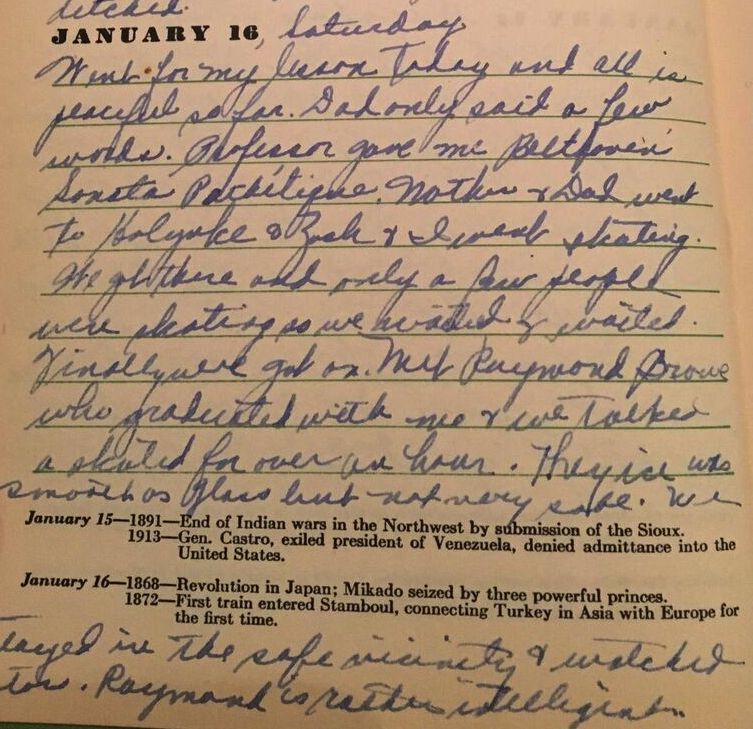 ditched.
JANUARY 16, Saturday
Went for my lesson today and all is
peaceful so far. Dad only said a few
words. Professor gave me Beethoven
Sonata Pathétique. Mother & Dad went
to Holyoke & & I went skating.
We got there and only a few people
were skating so we waited & waited.
Finally we got on. Met Raymond
who graduated with me & we talked
a skated for over an hour. They ice was
smooth as glass but not very safe. We
January 15—1891—End of Indian wars in the Northwest by submission of the Sioux.
1913—Gen. Castro, exiled president of Venezuela, denied admittance into the
United States.
January 16—1868—Revolution in Japan; Mikado seized by three powerful princes.
1872—First train entered Stamboul, connecting Turkey in Asia with Europe for
the first time.
tayed in the safe vicinity & watched
Raymond is rather intelligent.